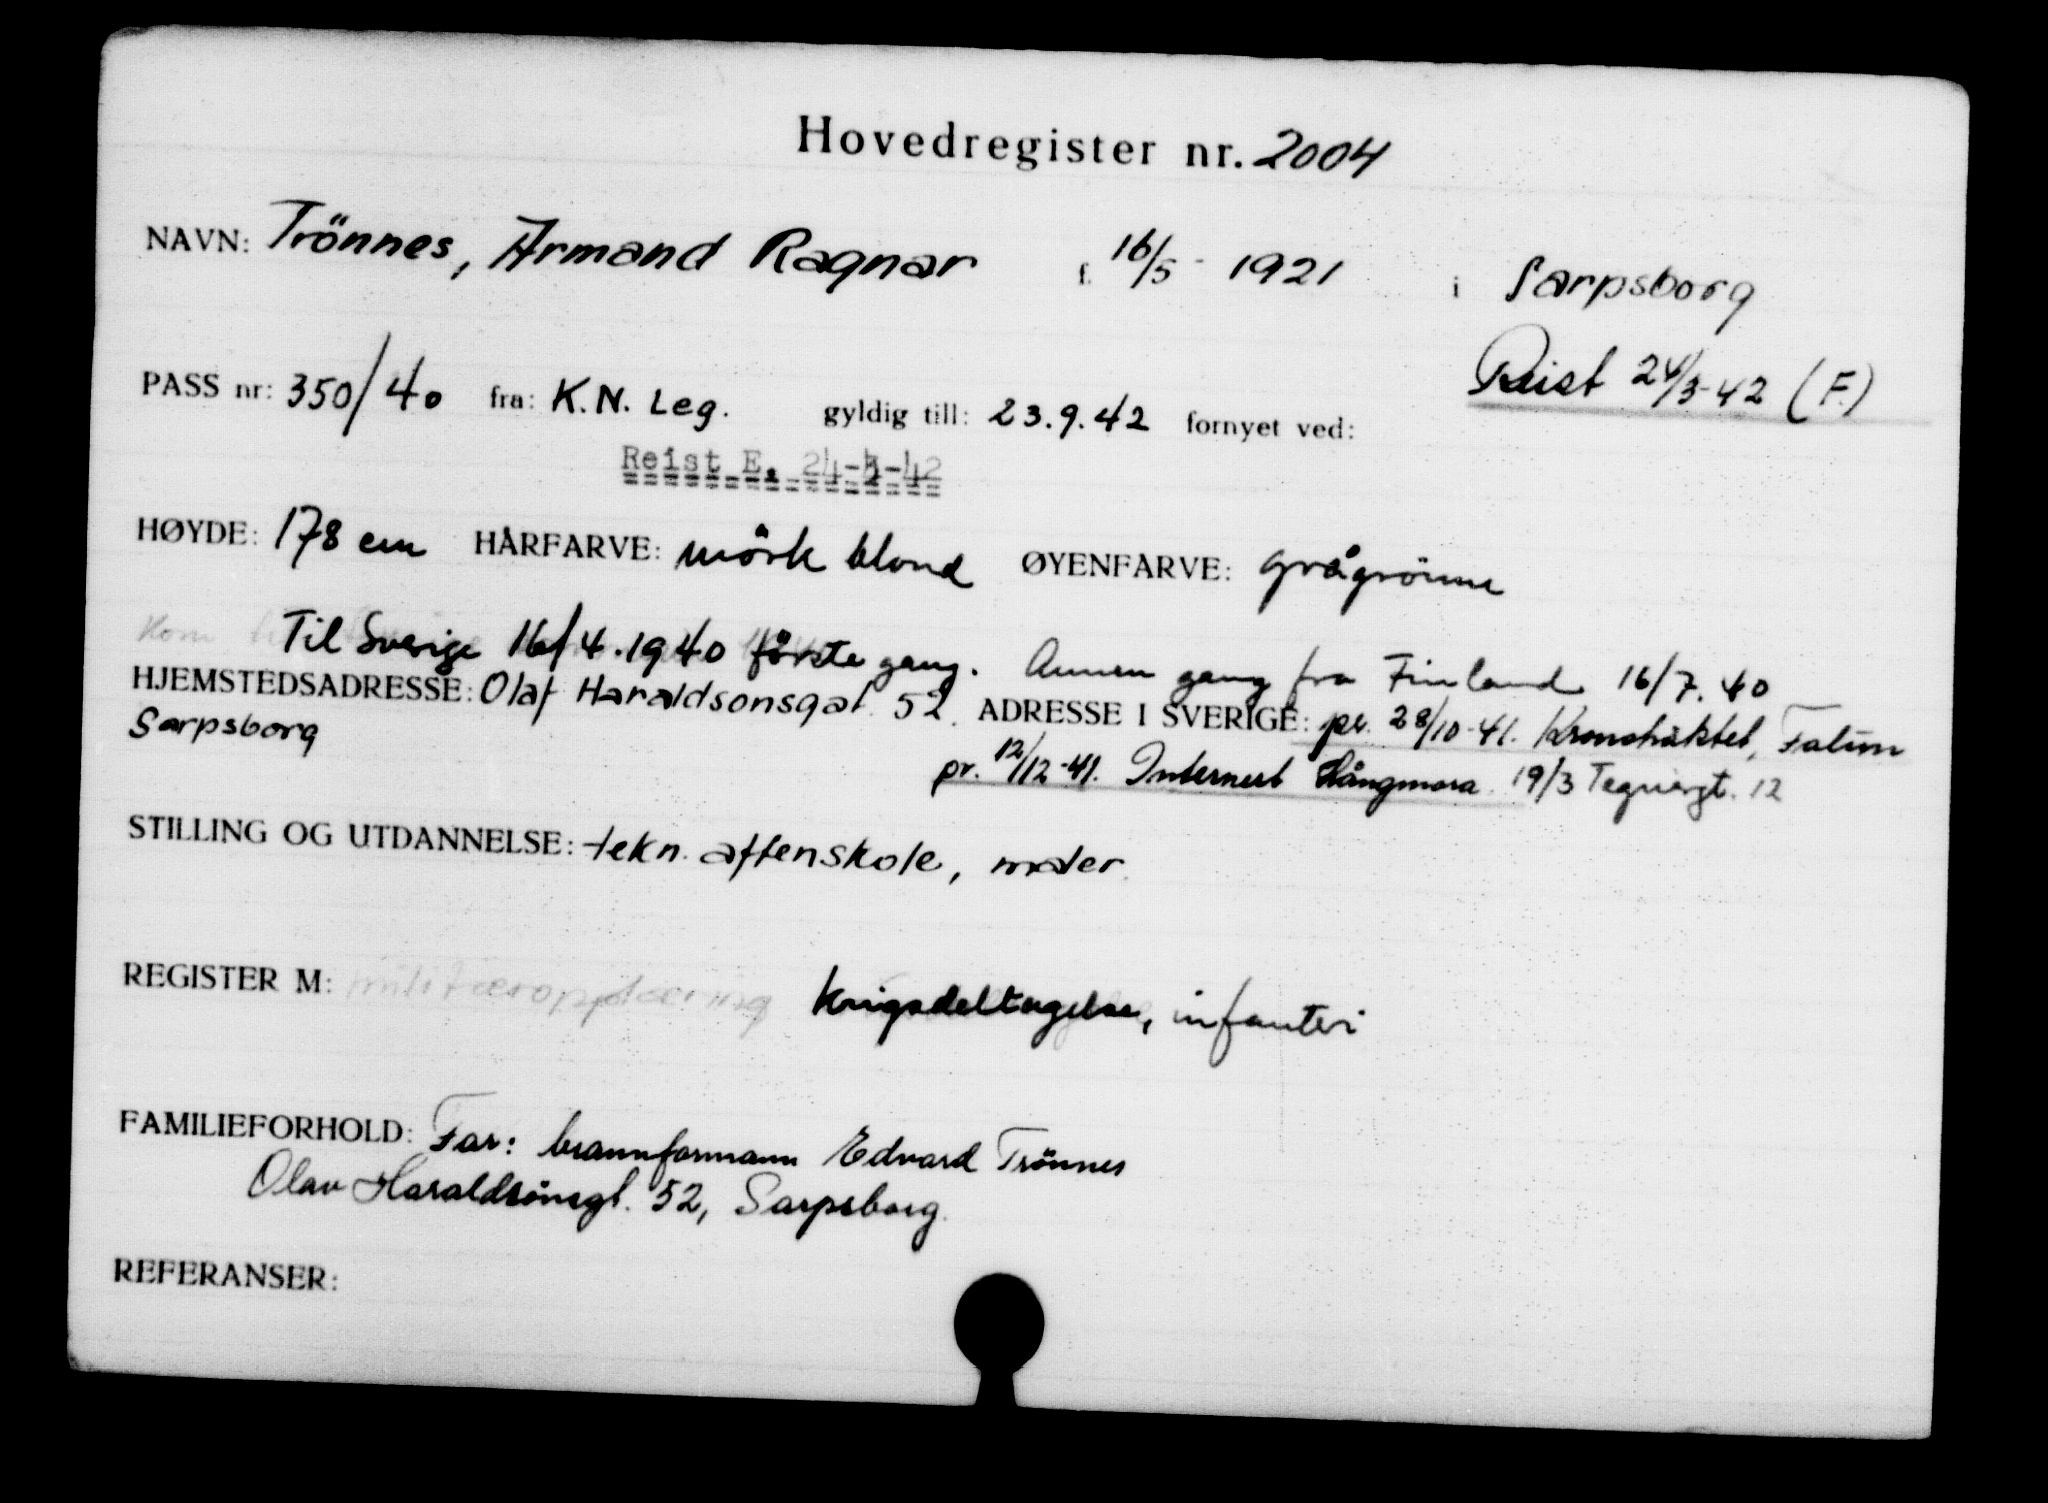 Hovedregister nr. 2004
NAVN: Trönnes, Armand Ragnar f. 16/5 - 1921 i Sarpsborg
Reist 24/3-42 (F.)
PASS nr: 350/40 fra: K.N. Leg. gyldig till: 23.9.42 fornyet ved:
Reist E. 24-4-42
HØYDE: 178 cm HÅRFARVE: mörk blond ØYENFARVE: grågrönne
Til Sverige 16/4.1940 förste gang. Annen gang fra Finland 16/7.40
HJEMSTEDSADRESSE: Olaf Haraldsonsgat. 52. ADRESSE I SVERIGE: pr. 28/10-41. Kronohäktet, Falun
Sarpsborg
pr. 12/12-41. Internert Långmora. 19/3 Tegnergt. 12
STILLING OG UTDANNELSE: tekn. aftenskole, maler.
REGISTER M: militæropplæring krigsdeltagelse, infanteri
FAMILIEFORHOLD: Far: brannformann Edvard Trönnes
Olav Haraldsönsgt. 52, Sarpsborg.
REFERANSER: